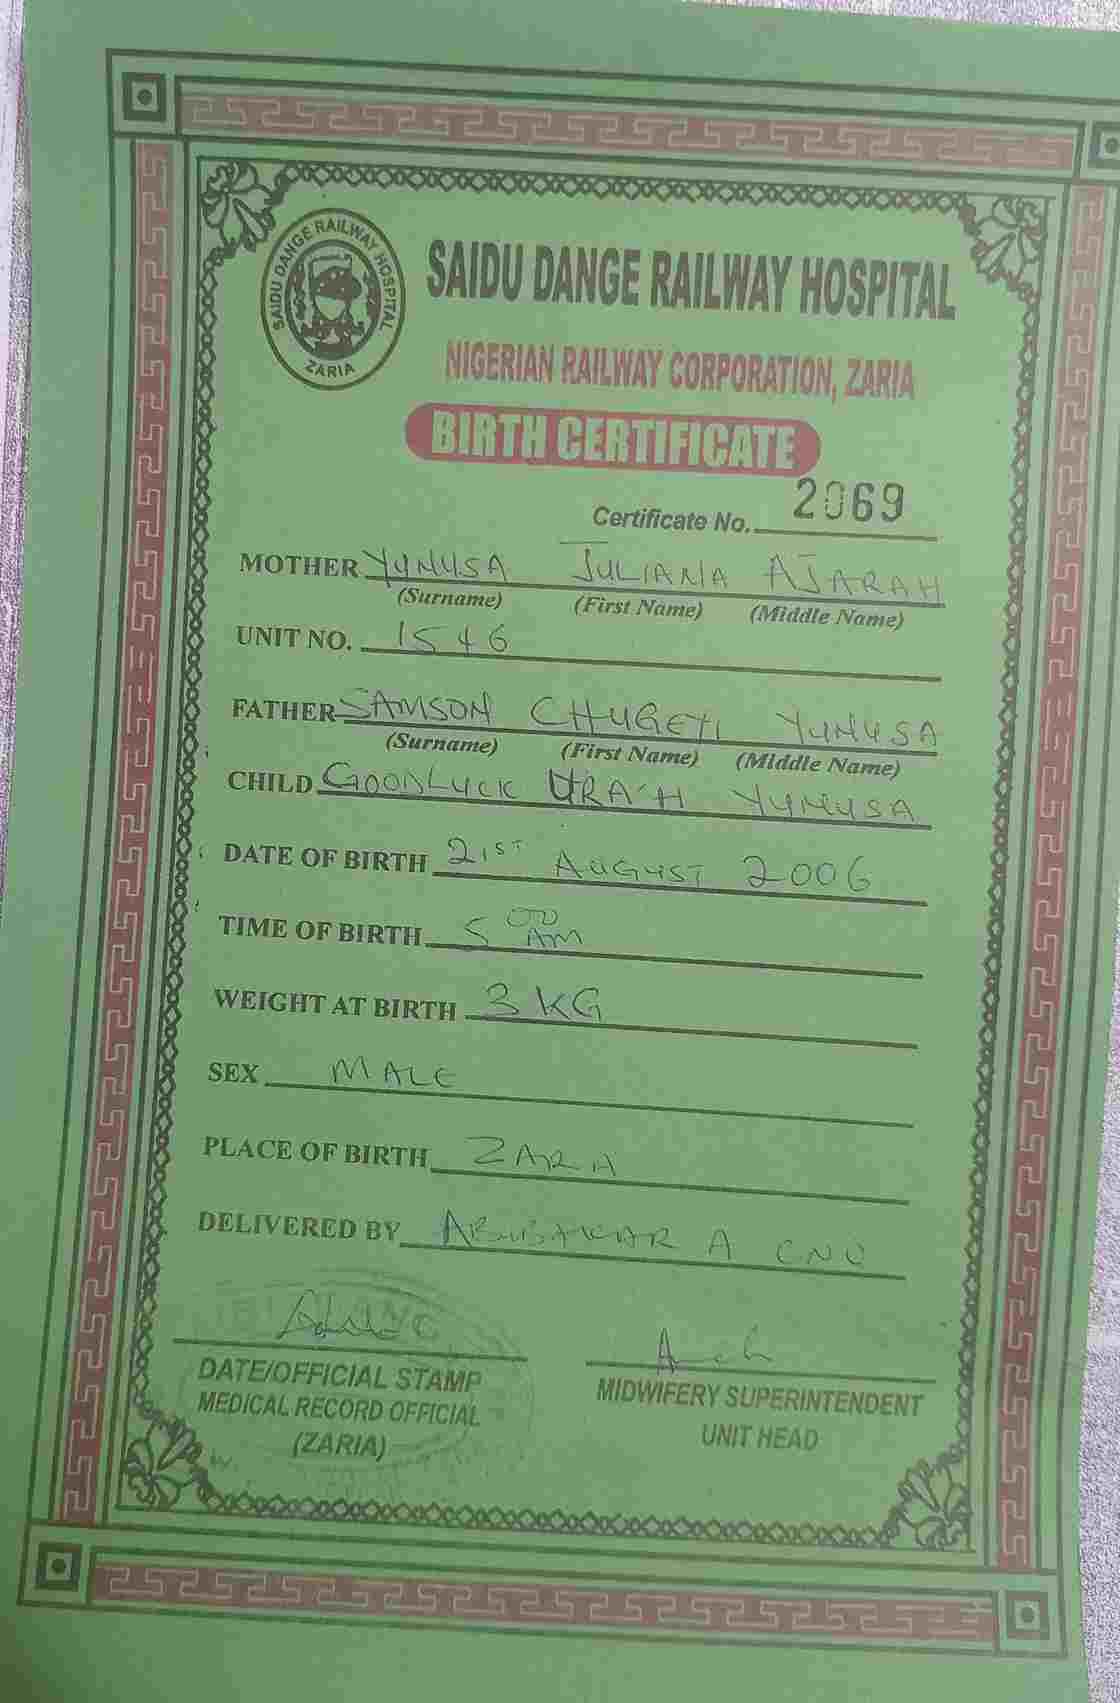 SAIDU DANGE RAILWAY HOSPITAL
ZARIA
SAIDU DANGE RAILWAY HOSPITAL
NIGERIAN RAILWAY CORPORATION, ZARIA
BIRTH CERTIFICATE
Certificate No. 2069
MOTHER YUNUSA JULIANA AJARAH
(Surname) (First Name) (Middle Name)
UNIT NO. 1546
FATHER SAMSON CHUGEYI YUNUSA
(Surname) (First Name) (Middle Name)
CHILD GOODLUCK URAH YUNUSA
DATE OF BIRTH 21ST AUGUST 2006
TIME OF BIRTH 5 00 AM
WEIGHT AT BIRTH 3 KG
SEX MALE
PLACE OF BIRTH ZARIA
DELIVERED BY ABUBAKAR A CNO
DATE/OFFICIAL STAMP
MEDICAL RECORD OFFICIAL
(ZARIA)
MIDWIFERY SUPERINTENDENT
UNIT HEAD